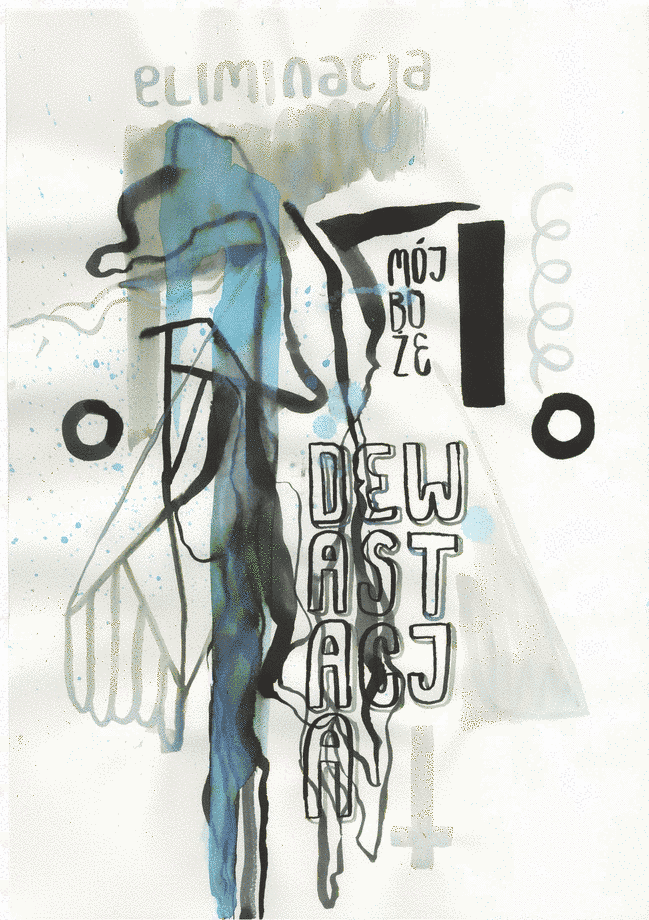 eliminacja
MÓJ
BO
ŻE
DEW
AST
ACJ
A